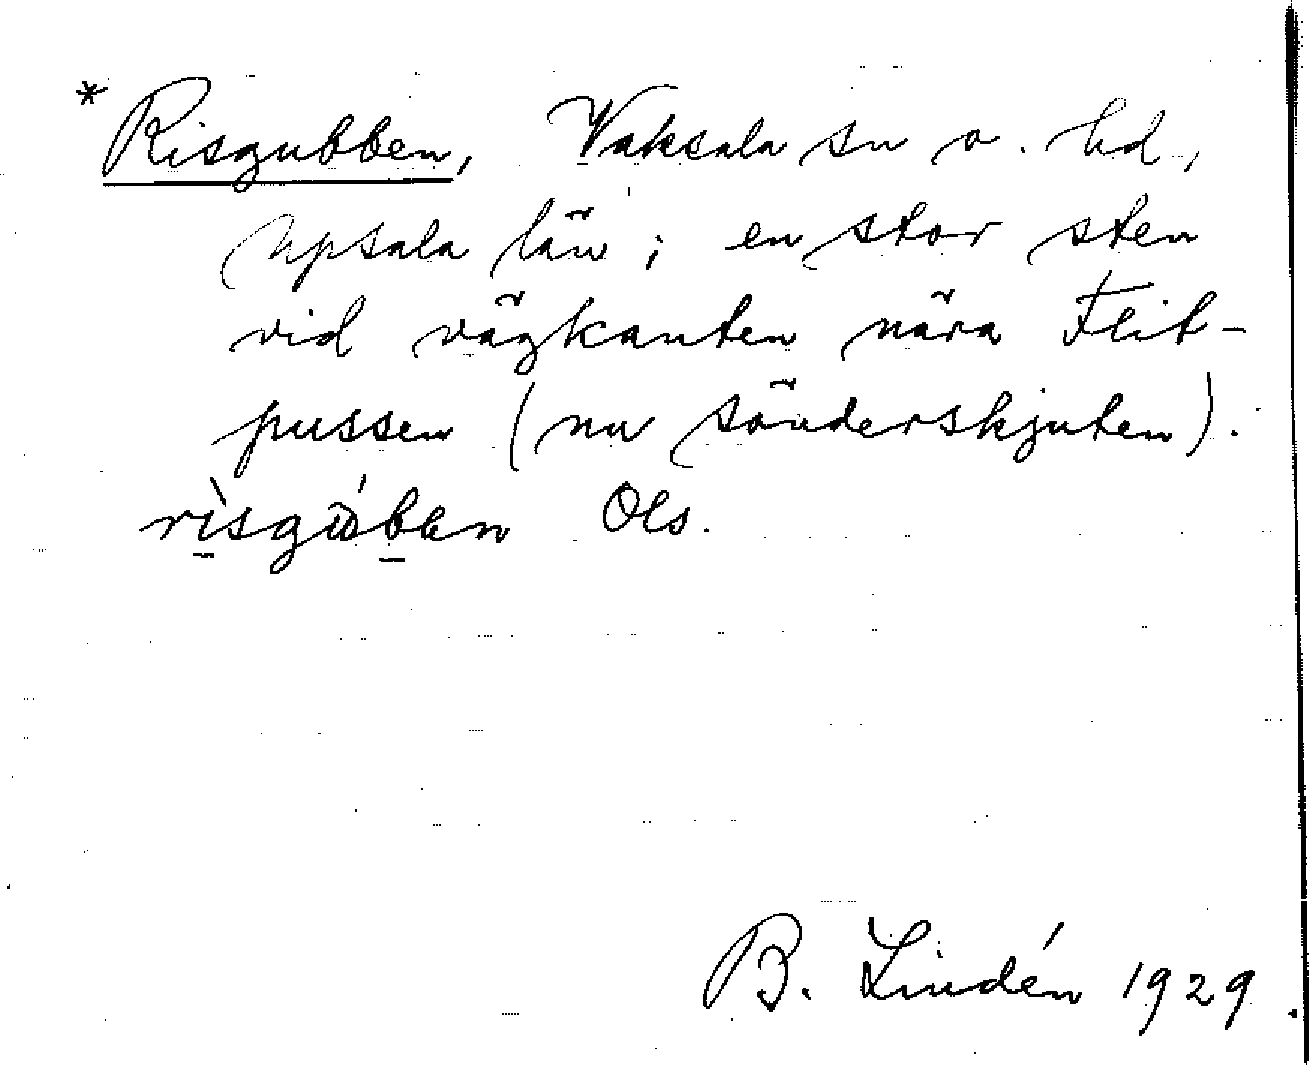 *Risgubben, Vaksala sn o. hd,
Upsala län; en stor sten
vid vägkanten nära Flit-
pussen (nu sönderskjuten).
rìsgúbben Ols.
B. Lindén 1929